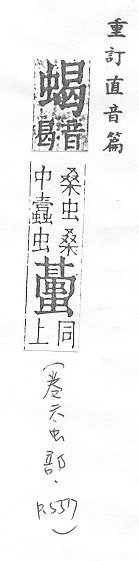 重訂直音篇
蝎
音曷
桑虫桑
中蠹虫
同上
(卷六虫部.P.557)